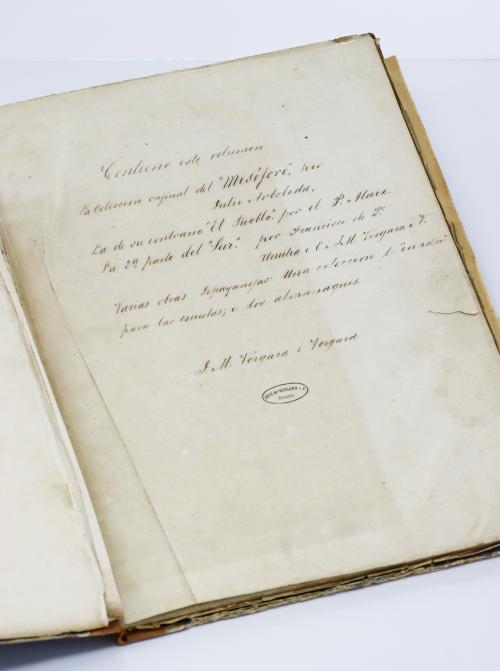 Contiene este volumen
La coleccion orijinal del "Misóforo", por
Julio Arboleda,
La de su contrario "El Pueblo" por el P.
La 2a parte del "Sur". por Francisco de P.
Urrutia i C i J. M Vergara i V.
Varias obras Popayanejas. Una coleccion de
para las escuelas; i dos almanaques.
J. M. Vergara i Vergara
JOSÉ Mª VERGARA I V.
BOGOTÁ